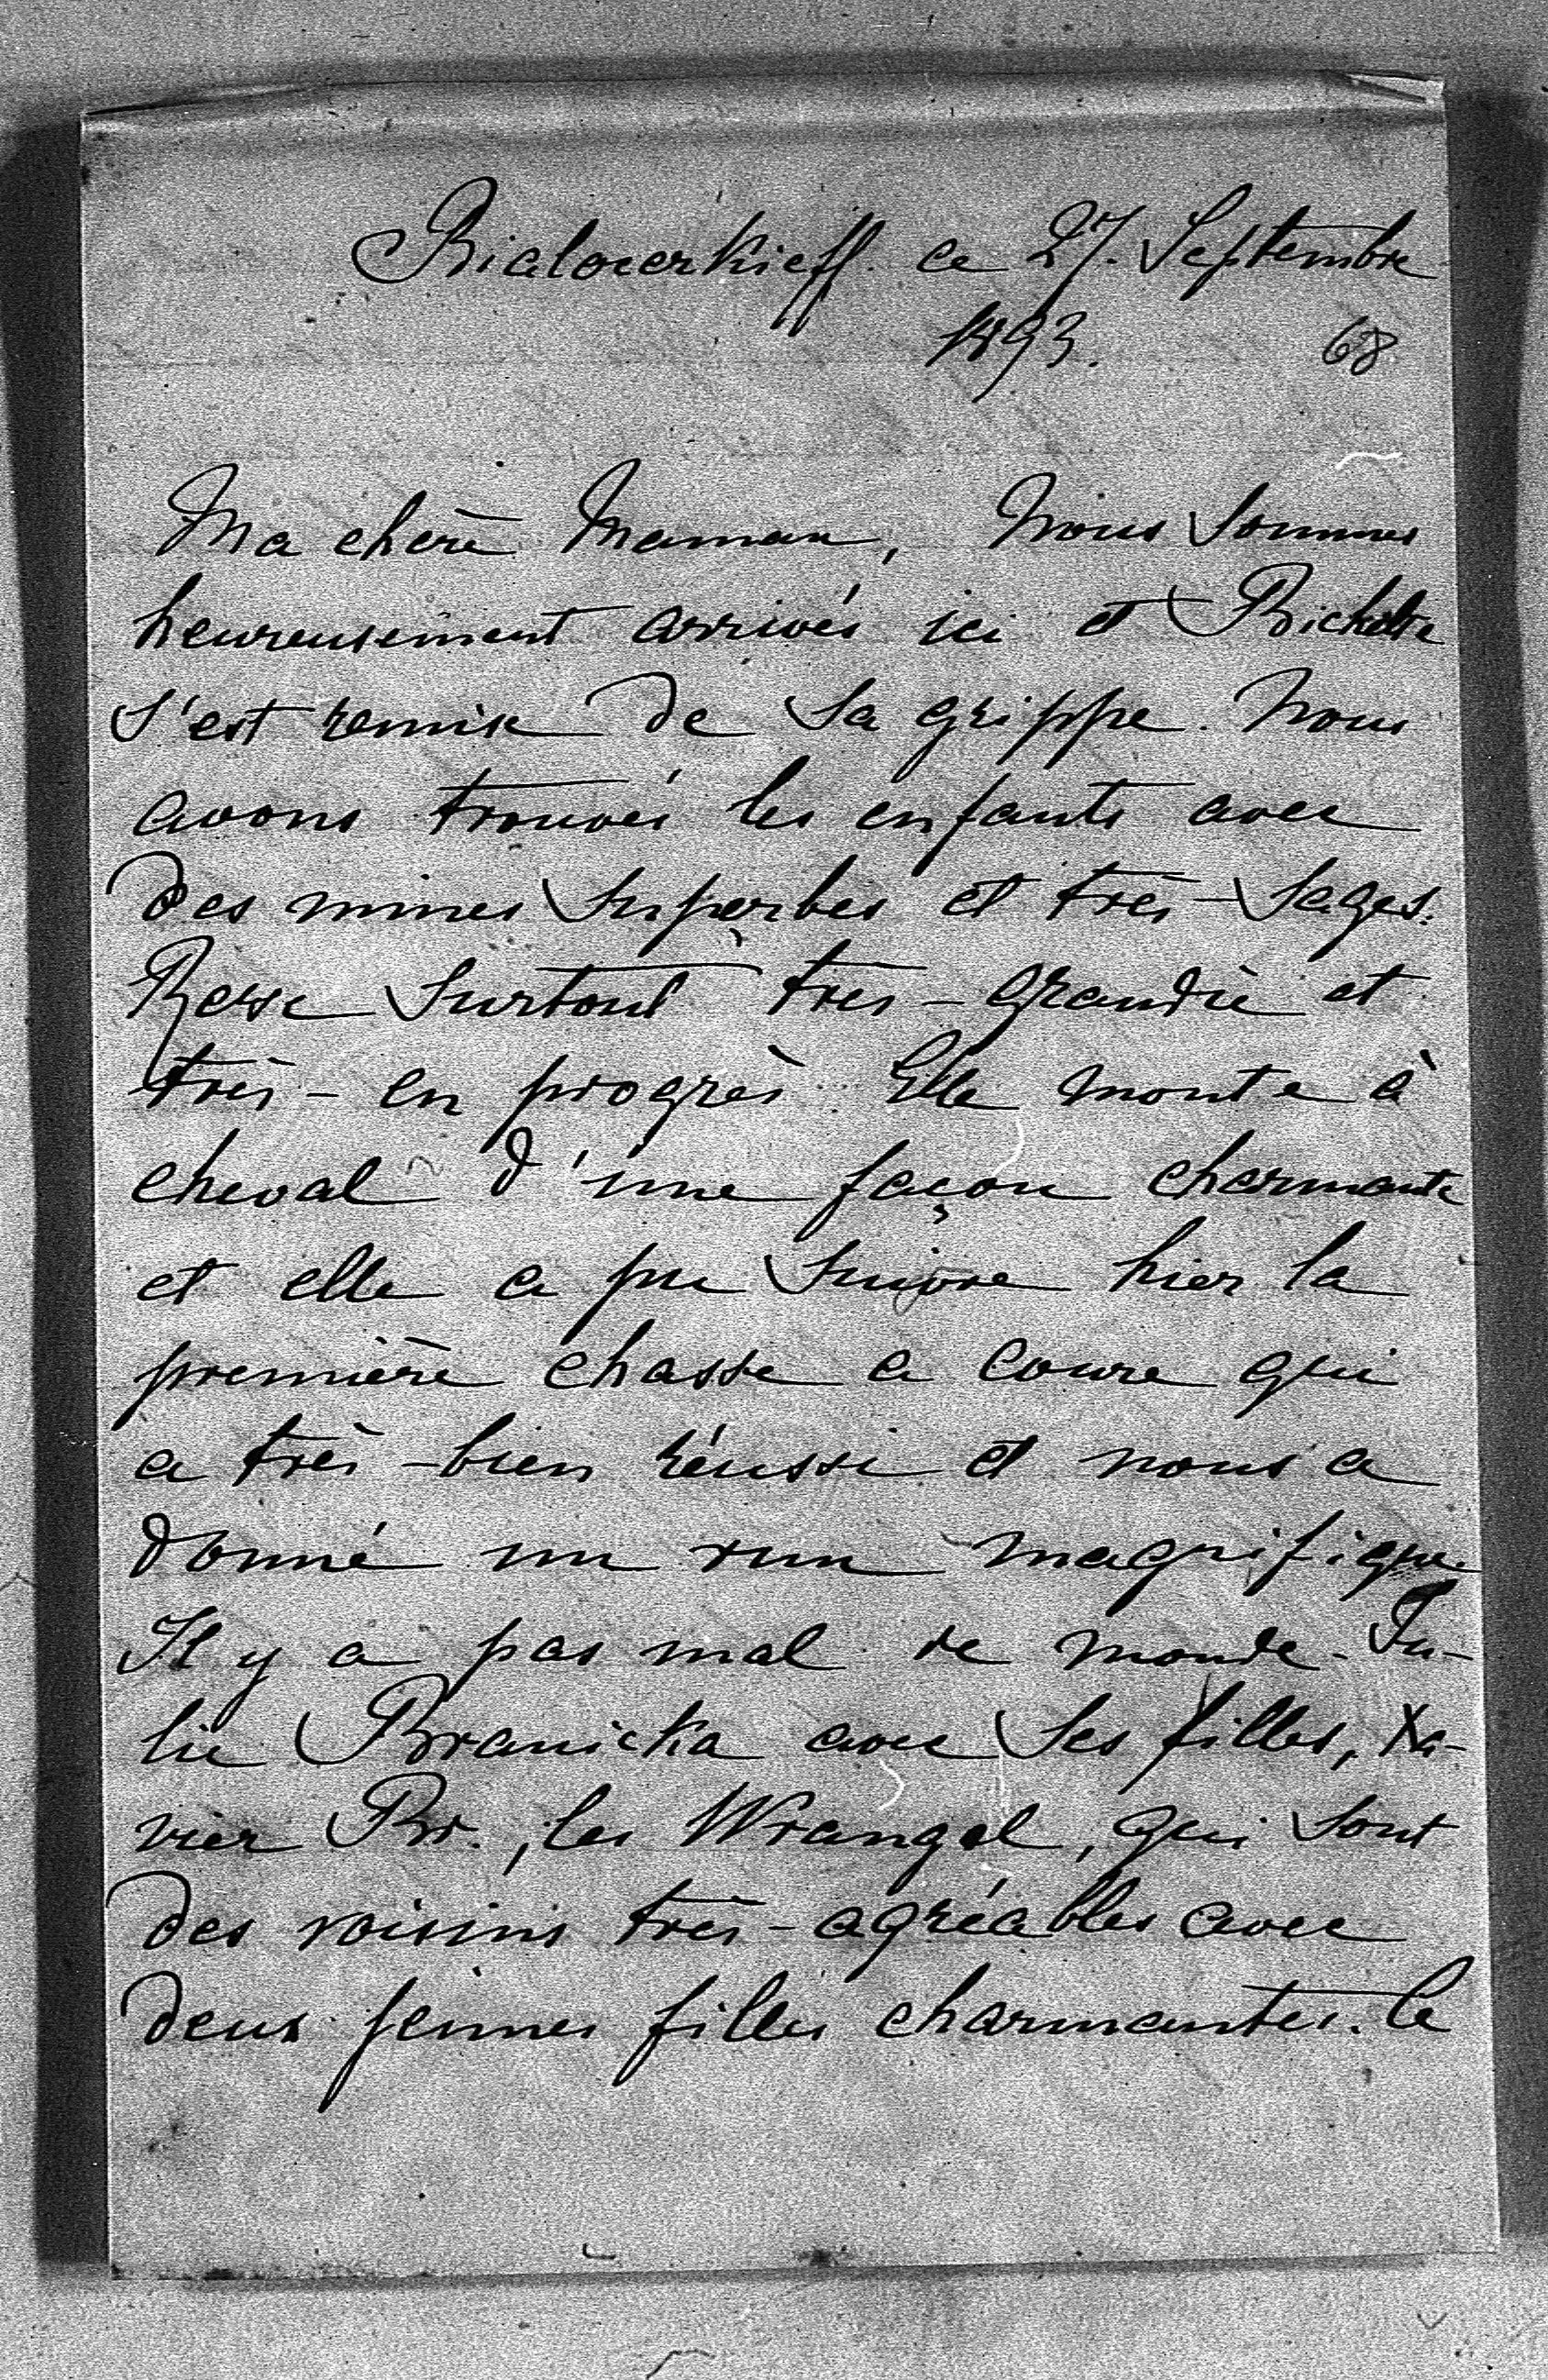 Bialocerkieff ce 27. Septembre
1893. 68
Ma chère Maman, Nous sommes
heureusement arrivés ici et Bichette
s'est remise de sa grippe. Nous
avons trouvés les enfants avec
des mines superbes et très-sages.
surtout très-grandie et
très-en progrès. Elle monte à
cheval d'une façon charmante
et elle a pu suivre hier la
première chasse a coure qui
a très-bien réussi et nous a
donné un run magnifique.
Il y a pas mal de monde. Ju-
lie Branicka avec ses filles, Xa-
vier Br., les Wrangel, qui sont
des voisins très-agréables avec
deux jeunes filles charmantes. Le